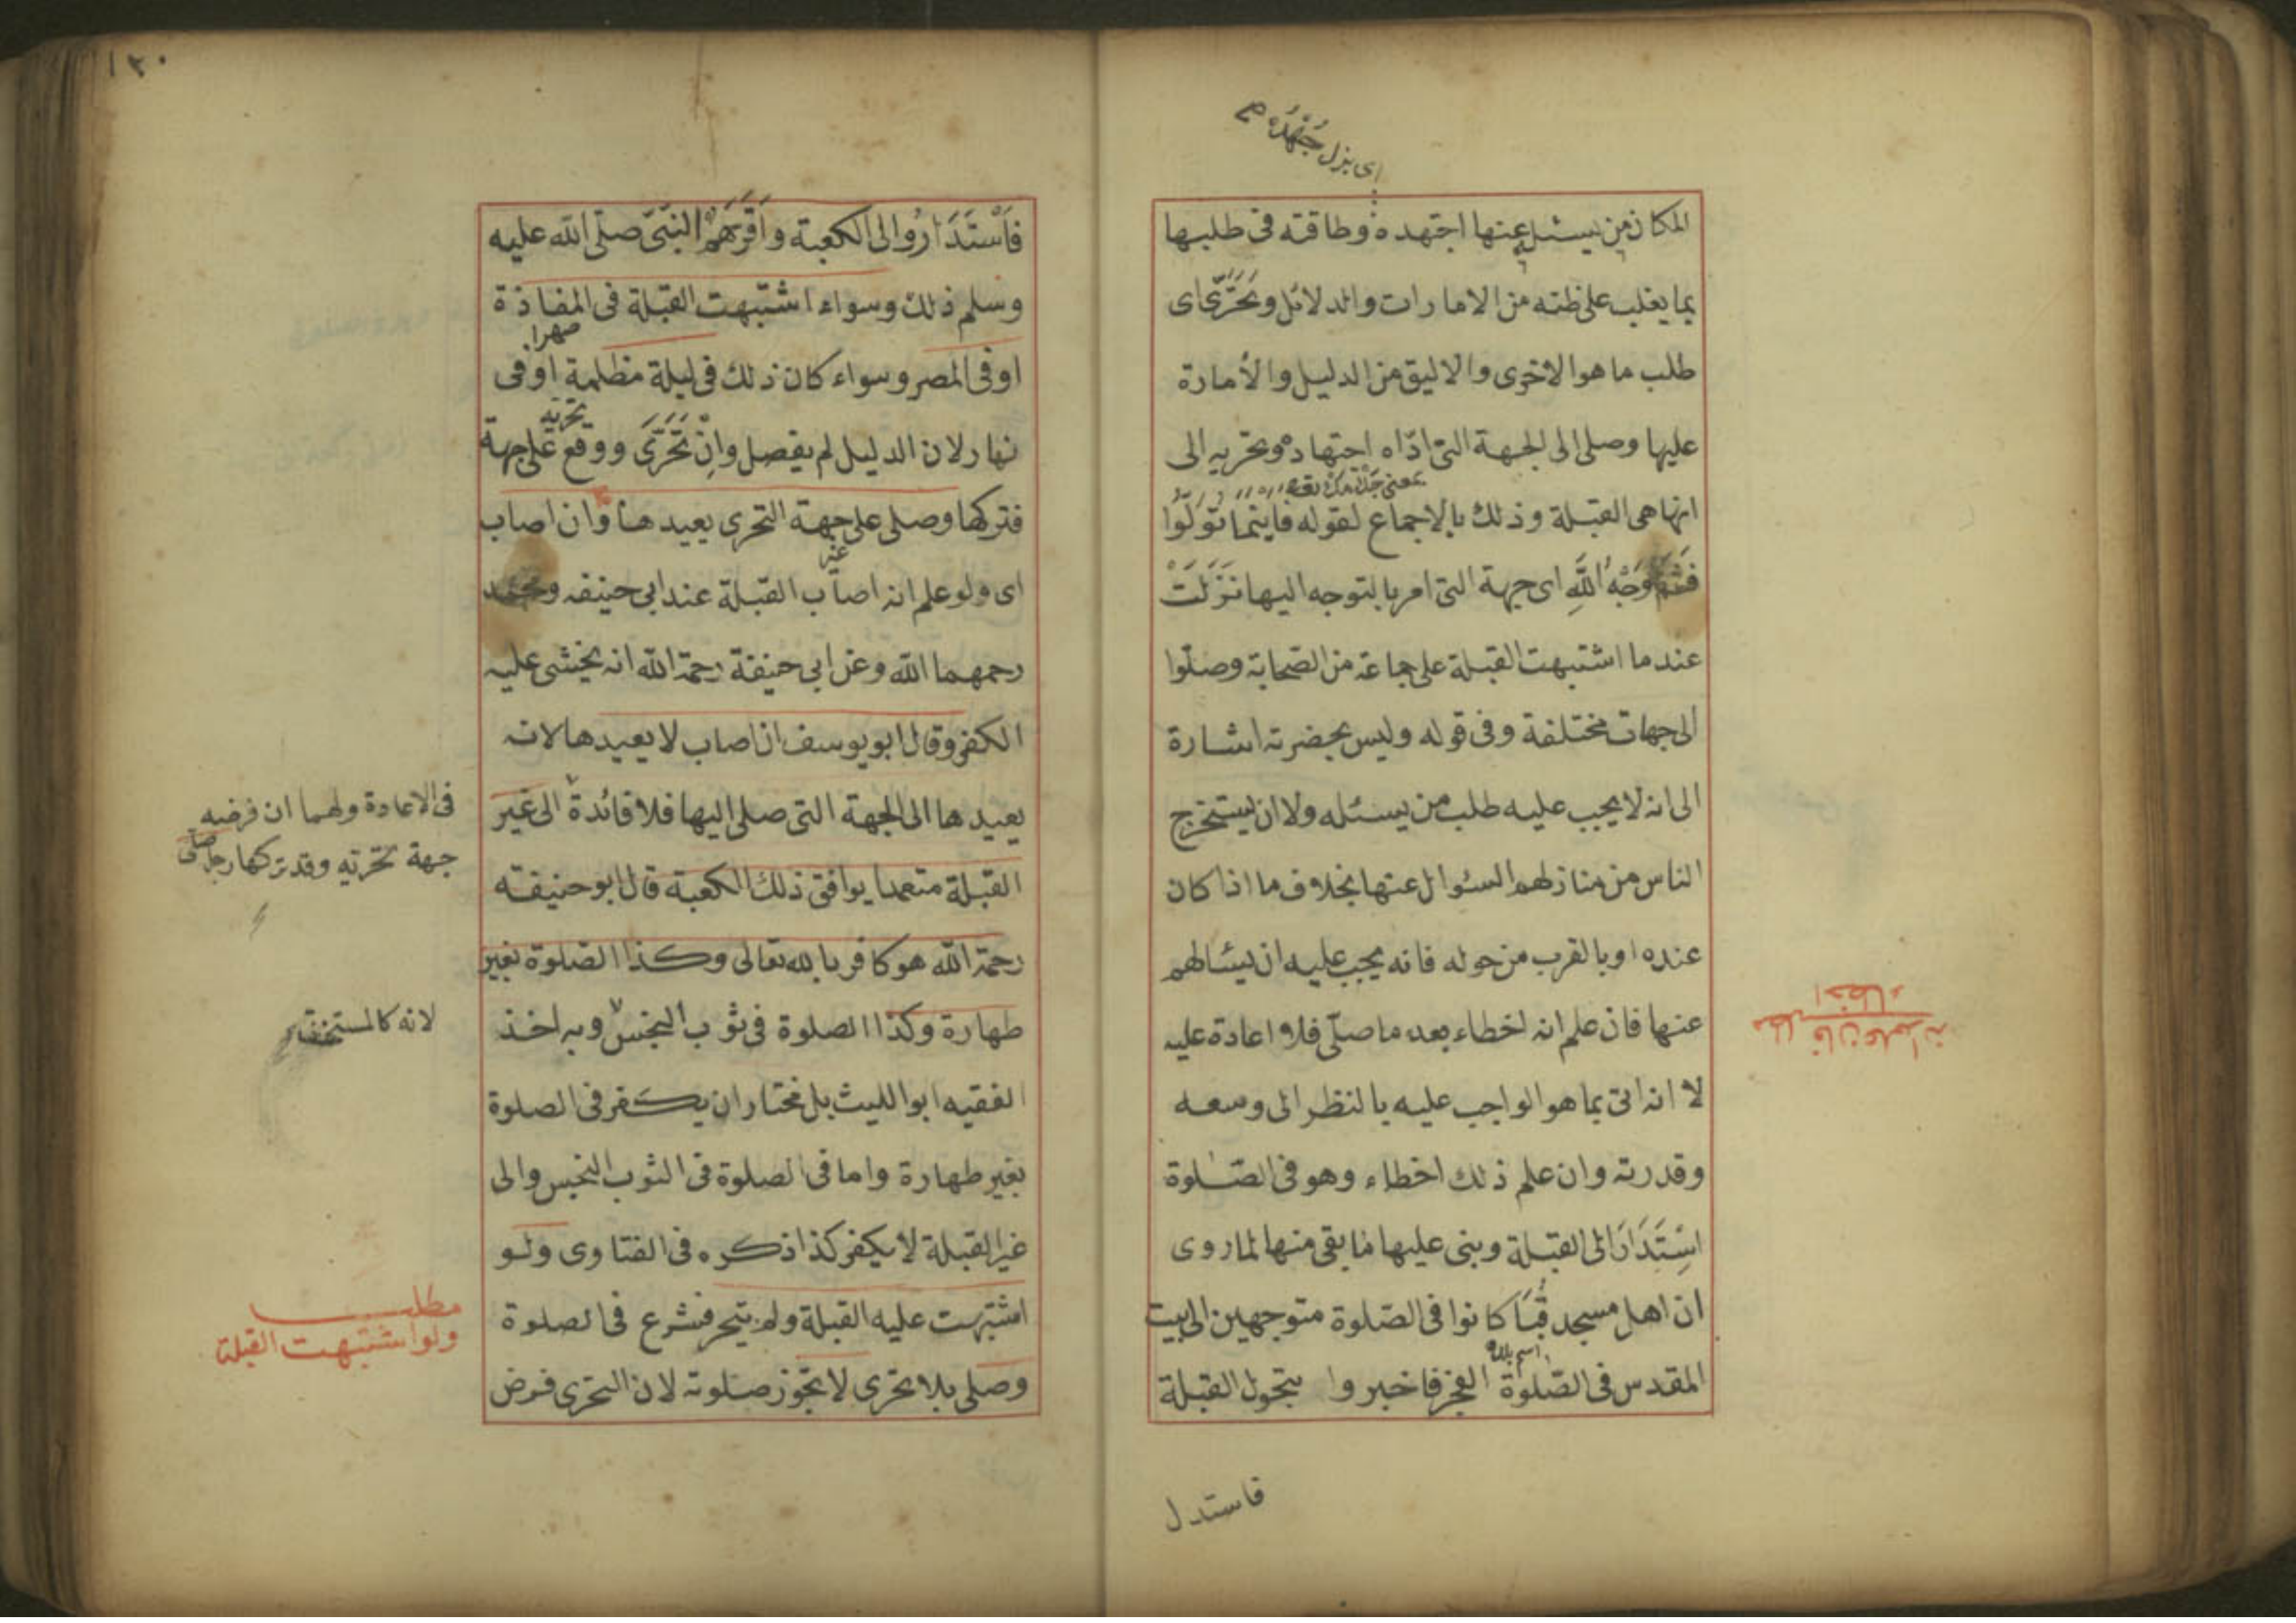 اى بزل جُهْدَهُ
المكان من يسئل عنها اجتهد ه وطاقته فى طلبها
بما يغلب على ظنه من الامارات والدلائل وتَحَرَّى اى
طلب ما هو الاخرى والاليق من الدليل والأمارة
عليها وصلى الى الجهة التى ادّاه اجتهاده وتحريه الى
انها هى القبلة وذلك بالاجماع لقوله فاينما تُوَلُّوا
فَثَمَّ وَجْهُ اللَّهِ اى جهة التى امر بالتوجه اليها نَزَلَتْ
عندما اشتبهت القبلة على جماعة من الصحابة وصلّوا
الى جهات مختلفة وفى قوله وليس بحضرته اشارة
الى انه لا يجب عليه طلب من يسئله ولا ان يستخرج
الناس من منازلهم السئوال عنها بخلاف ما اذا كان
عنده او بالقرب من حوله فانه يجب عليه ان يسئالهم
عنها فان علم انه اخطاء بعد ما صلّى فلا اعادة عليه
لا انه اتى بما هو الواجب عليه بالنظر الى وسعه
وقدرته وان علم ذلك اخطاء وهو فى الصّلوة
اسْتَدَارَ الى القبلة وبنى عليها ما بقى منها لما روى
ان اهل مسجد قُبَا كانوا فى الصّلوة متوجهين الى بيت
اسم بلده
المقدس فى الصّلوة الفجر فاخبروا بتحول القبلة
فاستدل
مطلب فان علم انه
اخطاء
١٣٠
فَاسْتَدَارُوا الى الكعبة واَقَرَّهُمْ النبّىّ صلّى الله عليه
وسلم ذلك وسواء اشتبهت القبلة فى المفاذة
صهراء
او فى المصر وسواء كان ذلك فى ليلة مظلمة او فى
نهار لان الدليل لم يفصل وانْ تَحَرَّىَ ووقع تحريه على جهة
فتركها وصلى على جهة التحرى يعيدها وان اصاب
غير
اى ولو علم انه اصاب القبلة عند ابى حنيفه ومحمد
رحمهما الله وعن ابى حنيفة رحمة الله انه يخشى عليه
الكفر وقال ابو يوسف ان اصاب لا يعيدها لانه
يعيدها الى الجهة التى صلى اليها فلا فائدة الى غير
القبلة متعمدا يوافق ذلك الكعبة قال ابو حنيفته
رحمة الله هو كافر بالله تعالى وكذا الصلوة بغير
طهارة وكذا الصلوة فى ثوب النجس وبه اخذ
الفقيه ابو الليث بل مختار ان يكفر فى الصلوة
بغير طهارة واما فى الصلوة فى الثوب النجس والى
غير القبلة لا يكفر كذا ذكره فى الفتاوى ولو
اشتبهت عليه القبلة ولم يتحر فشرع فى الصلوة
وصلى بلا تحرى لا تجوز صلوته لان التحرى فرض
فى الاعادة ولهما ان فرضه
جهة تحرّيه وقد تركها
لانه كالمستخف
مطلب
ولو اشتبهت القبلة